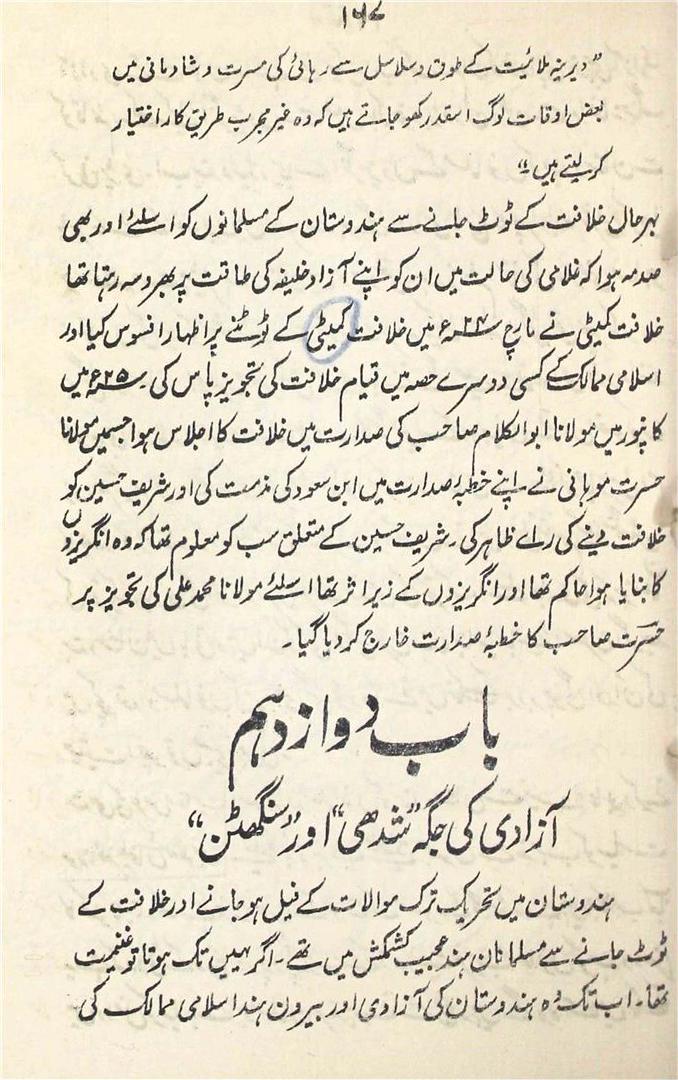 ۱۶۷
"دیرینہ ملائیت کے طوق و سلاسل سے رہائی کی مسرت و شادمانی میں
بعض اوقات لوگ اسقدر کھو جاتے ہیں کہ وہ غیر مجرب طریق کار اختیار
کر لیتے ہیں۔"
بہر حال خلافت کے ٹوٹ جانے سے ہندوستان کے مسلمانوں کو اسلئے اور بھی
صدمہ ہوا کہ غلامی کی حالت میں ان کو اپنے آزاد خلیفہ کی طاقت پر بھروسہ رہتا تھا
خلافت کمیٹی نے مارچ ۲۴ء میں خلافت کمیٹی کے ٹوٹنے پر اظہار افسوس کیا اور
اسلامی ممالک کے کسی دوسرے حصہ میں قیام خلافت کی تجویز پاس کی۔ ۲۵ء میں
کانپور میں مولانا ابوالکلام صاحب کی صدارت میں خلافت کا اجلاس ہوا جسمیں مولانا
حسرت موہانی نے اپنے خطبۂ صدارت میں ابن سعود کی مذمت کی اور شریف حسین کو
خلافت دینے کی رائے ظاہر کی۔ شریف حسین کے متعلق سب کو معلوم تھا کہ وہ انگریزوں
کا بنایا ہوا حاکم تھا اور انگریزوں کے زیر اثر تھا اسلئے مولانا محمد علی کی تجویز پر
حسرت صاحب کا خطبۂ صدارت خارج کر دیا گیا۔
باب دوازدہم
آزادی کی جگہ "شدھی" اور "سنگھٹن"
ہندوستان میں تحریک ترک موالات کے فیل ہو جانے اور خلافت کے
ٹوٹ جانے سے مسلمانان ہند عجیب کشمکش میں تھے۔ اگر یہیں تک ہوتا تو غنیمت
تھا۔ اب تک وہ ہندوستان کی آزادی اور بیرون ہند اسلامی ممالک کی